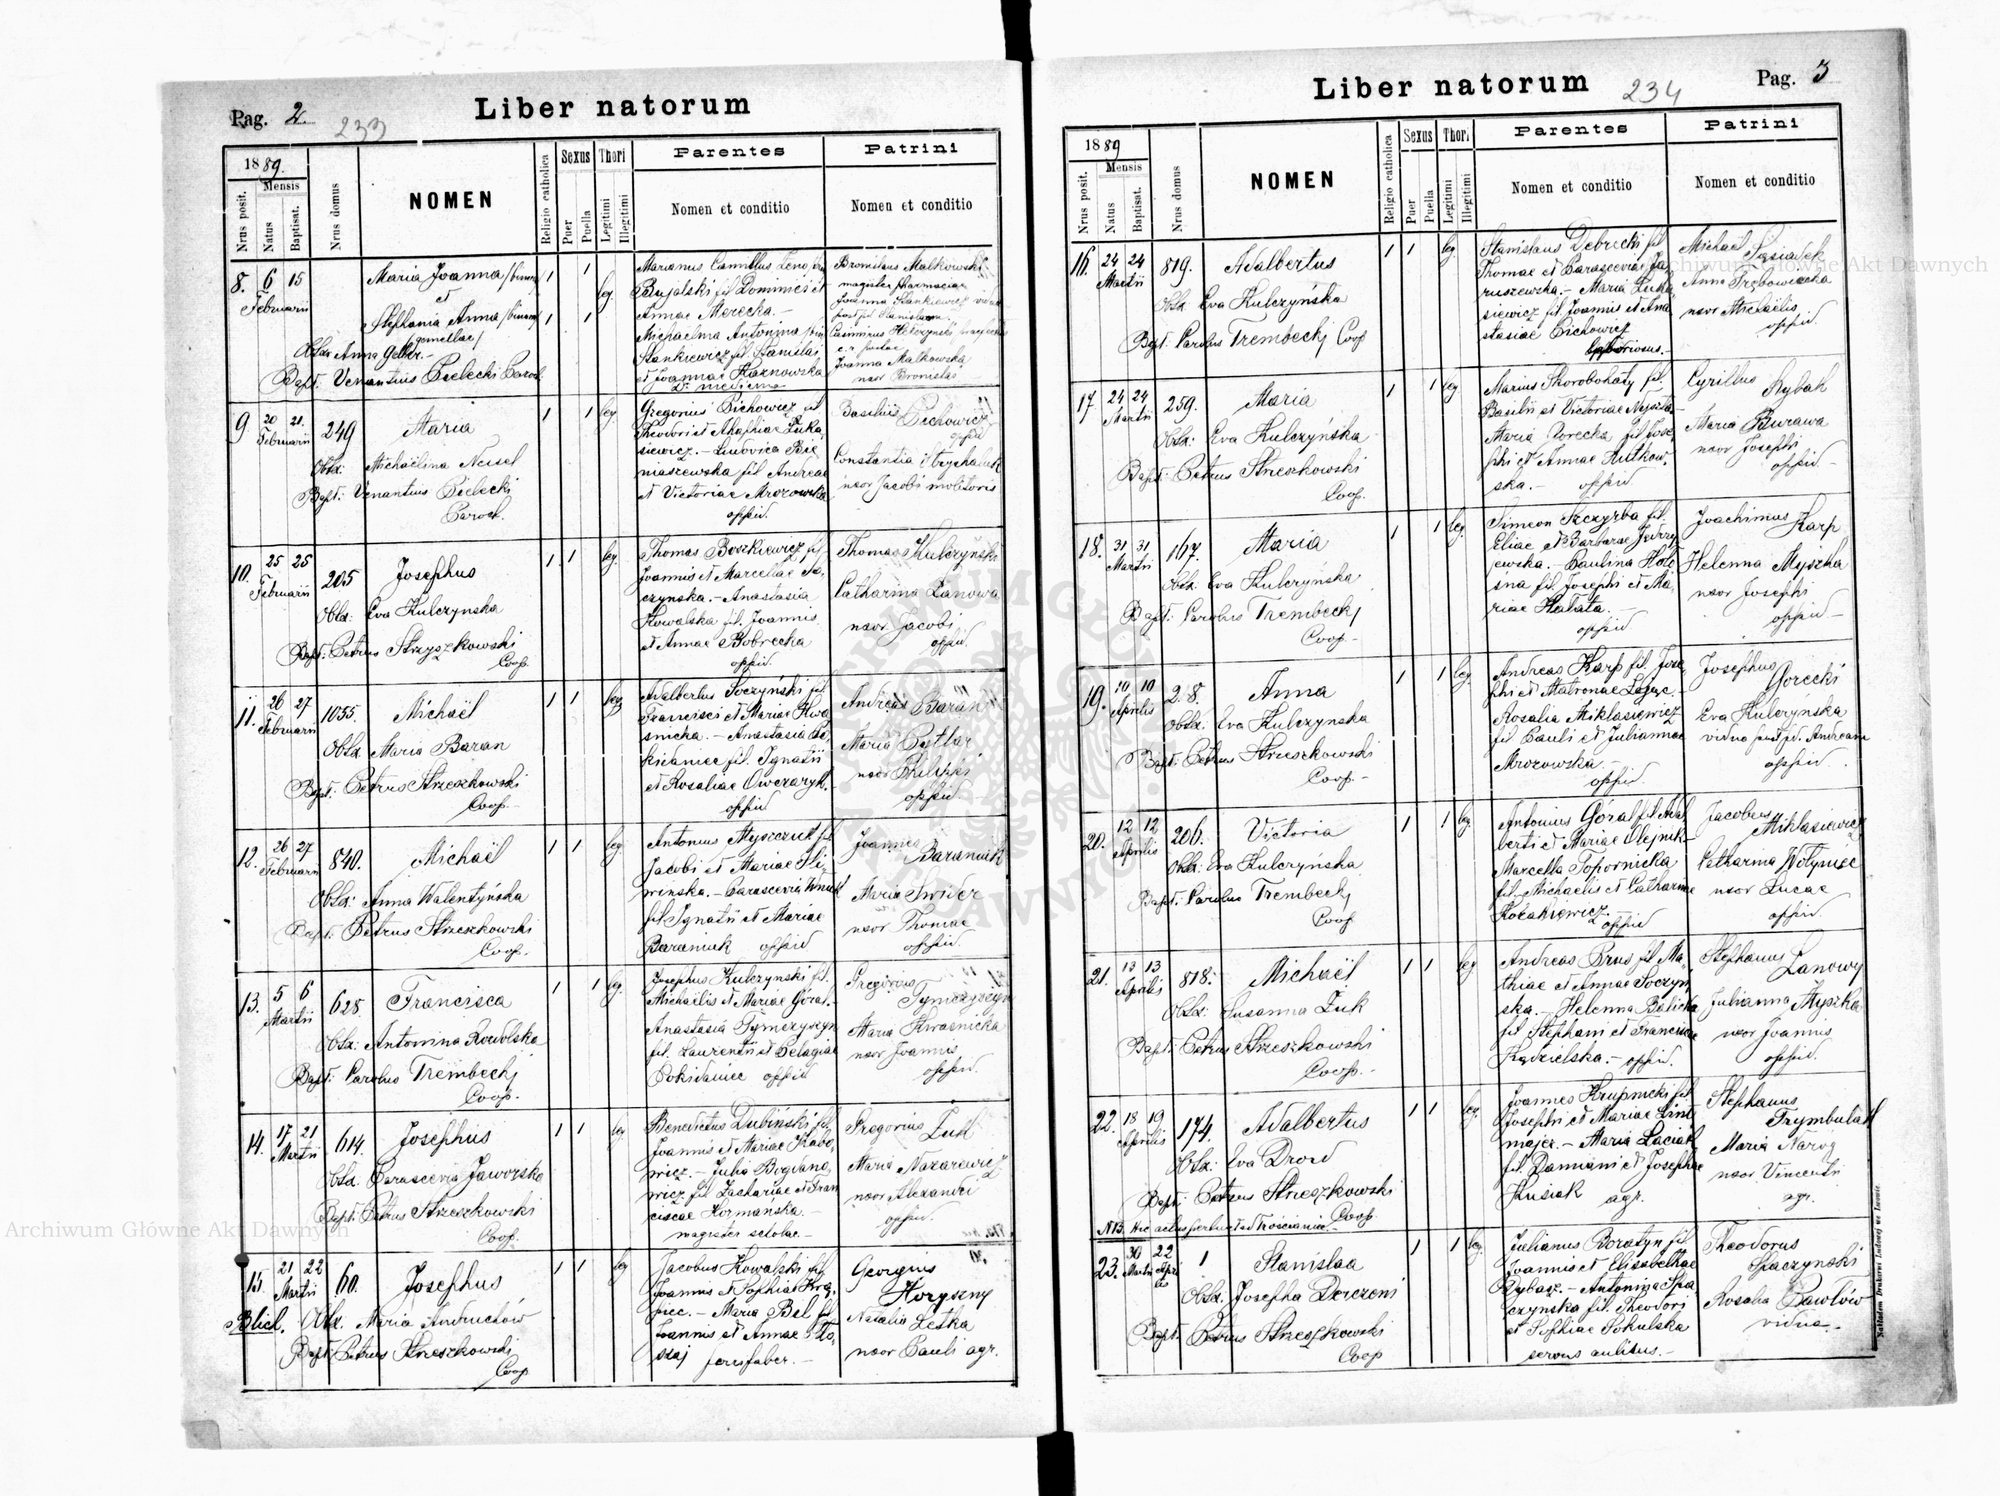 Pag. 2.
233
Liber natorum
1889.
Nrus posit.
Mensis
Natus
Baptisat.
Nrus domus
NOMEN
Religio catholica
Sexus
Puer
Puella
Thori
Legitimi
Illegitimi
Parentes
Nomen et conditio
Patrini
Nomen et conditio
8. 6 15
Februarii
Maria Joanna
et
Stephania Anna
gemellae/
Obstx Anna
Bapt. Venantius Bielecki Paroch.
1 1
1 1
leg.
Dominici et
Annae Merecka.-
Michaelina Antonina
Stankiewicz fil. Stanislai
et Joannae
Bronislaus Malkowski
magister pharmaciae
Joanna Stankiewicz
Casimirus
Joanna Malkowska
uxor Bronislai
9 20 21. 249
Februarii
Maria
Obstx: Michaëlina
Bapt: Venantius Bielecki
Paroch.
1 1 leg.
Gregorius Cichowicz fil
Theodori et Agaphiae Łuka-
siewicz.- Ludovica Bie
niaszewska fil Andreae
et Victoriae Mrozowska
oppid.
Basilius Cichowicz
oppid
Constantia
uxor Jacobi molitoris
10. 25 25 205
Februarii
Josephus
Obstx: Eva Kulczynska
Bapt: Petrus Strzyszkowski
Coop.
1 1 leg
Thomas Boszkiewicz fil
Joannis et Marcellae Sa-
czynska.- Anastasia
Kowalska fil. Joannis
et Annae Bobrecka
oppid.
Thomas Kulczynski
Catharina Łanowa
uxor Jacobi
oppid.
11. 26 27 1055.
Februarii
Michaël
Obstx Maria Baran
Bapt: Petrus Strzeszkowski
Coop.
1 1 leg
Adalbertus Soczyński fil.
Francisci et Mariae Kwa
snicka.- Anastasia
fil. Ignatii
et Rosaliae Owczaryk.
oppid
Andreas Baran
Maria
uxor Philippi
oppid.
12. 26 27 840.
Februarii
Michaël
Obstx: Anna Walentyńska
Bapt: Petrus Strzeszkowski
Coop.
1 1 leg.
Antonius Myszczuk fil
Jacobi et Mariae Śli-
winska.- Parascevia
fil. Ignatii et Mariae
Baraniuk oppid
Joannes
Baraniuk
Maria Świder
uxor Thomae
oppid.
13. 5 6 628.
Martii
Francisca
Obstx: Antonina
Bapt: Carolus Trembecky
Coop.
1 1 leg.
Josephus Kulczynski fil.
Michaëlis et Mariae Góral.-
Anastasia Tymczyszyn
fil. Laurentii et Pelagiae
oppid
Gregorius
Tymczyszyn
Maria Kwaśnicka
uxor Joannis
oppid.
14. 17 21 614.
Martii
Josephus
Obstx Parascevia Jaworska
Bapt: Petrus Strzeszkowski
Coop.
1 1 leg.
Benedictus Dubiński fil.
Joannis et Mariae
wicz.- Julia Bogdano-
wicz fil Zachariae et Fran
ciscae Hormańska.-
magister scholae.-
Gregorius Żuk
Maria Nazarewicz
uxor Alexandri
oppid.
15. 21 22 60.
Martii
Blich.
Josephus
Obstx. Maria Andruchów
Bapt: Petrus Strzeszkowski
Coop
1 1 leg
Jacobus Kowalski fil
Joannis et Sophiae
piec.- Maria Bel fil
Joannis et Annae
ferrifaber.-
Georgius
Horyszny
Natalia Leska
uxor Pauli agr.
Liber natorum
234
Pag. 3
1889
Nrus posit.
Mensis
Natus
Baptisat.
Nrus domus
NOMEN
Religio catholica
Sexus
Puer
Puella
Thori
Legitimi
Illegitimi
Parentes
Nomen et conditio
Patrini
Nomen et conditio
16. 24 24 819.
Martii
Adalbertus
Obstx Eva Kulczyńska
Bapt: Carolus Trembecky Coop
1 1 leg.
Stanislaus Debrecki fil
Thomae et Parasceviae Ja-
ruszewska.- Maria Łuka
siewicz fil. Joannis et Ana
stasiae Cichowicz
laboriosus.-
Michaël Sąsiadek
Anna Trębowiecka
uxor Michaëlis
oppid.
17 24 24 259.
Martii
Maria
Obstx: Eva Kulczyńska
Bapt: Petrus Strzeszkowski
Coop.
1 1 leg
Marius Skorobohaty fil.
Basilii et Victoriae
Maria Górecka fil Jose
phi et Annae Rutkow-
ska.- oppid
Cyrillus Rybak
Maria Burawa
uxor Josephi
oppid.-
18. 31 31 167.
Martii
Maria
Obstx. Eva Kulczyńska
Bapt: Carolus Trembecky
Coop.-
1 1 leg.
Simeon Szczyrba fil.
Eliae et Barbarae Jędrzy
jewska.- Paulina
fil. Josephi et Ma-
riae Hałata.-
oppid
Joachimus Karp
Helenna Myszka
uxor Josephi
oppid.-
19. 10 10 28.
Aprilis
Anna
Obstx: Eva Kulczynska
Bapt: Petrus Strzeszkowski
Coop.-
1 1 leg.
Andreas Karp fil. Jose
phi et Matronae
Rosalia Miklasiewicz
fil Pauli et Juliannae
Mrozowska.-
oppid
Josephus
Gorecki
Eva Kulczynska
vidua post pd. Andream
oppid.
20. 12 12 206.
Aprilis
Victoria
Obstx: Eva Kulczyńska
Bapt: Carolus Trembecky
Coop
1 1 leg
Antonius Góral fil. Adal
berti et Mariae Olejnik.-
Marcella Topornicka
fil. Michaelis et Catharinae
Kołakiewicz.
oppid
Jacobus
Miklasiewicz
Catharina Wołyniec
uxor Lucae
oppid.
21. 13 13 818.
Aprilis
Michaël
Obstx: Susanna Żuk
Bapt: Petrus Strzeszkowski
Coop.-
1 1 leg
Andreas Brus fil Ma-
thiae et Annae Soczyń
ska.- Helenna Balicka
fil Stephani et Franciscae
Kądzielska.- oppid.
Stephanus
Łanowy
Julianna Myszka
uxor Joannis
oppid.
22. 18 19 174.
Aprilis
Adalbertus
Obstx: Eva Drozd
Bapt: Petrus Strzeszkowski
Coop.
NB. Hic actus pertinet ad Trościaniec
1 1 leg.
Joannes Krupnicki fil
Josephi et Mariae
majer.- Maria Łaciak
fil. Damiani et Josephae
Kusiak agr.
Stephanus
Trymbulak
Maria Narog
uxor Vincentii
agr.
23. 30 22 1
Martii Apri
lis
Stanislaa
Obstx. Josepha Derczeni
Bapt: Petrus Strzeszkowski
Coop
1 1 leg
Julianus Boratyn fil
Joannis et Elisabethae
Rybacz.- Antonina Spa
czynska fil. Theodori
et Sophiae Sokulska
servus aulicus.-
Theodorus
Spaczynski
Rosalia Pawłów
vidua.-
Nakładem Drukarni Ludowej we Lwowie.
Archiwum Główne Akt Dawnych
Archiwum Główne Akt Dawnych